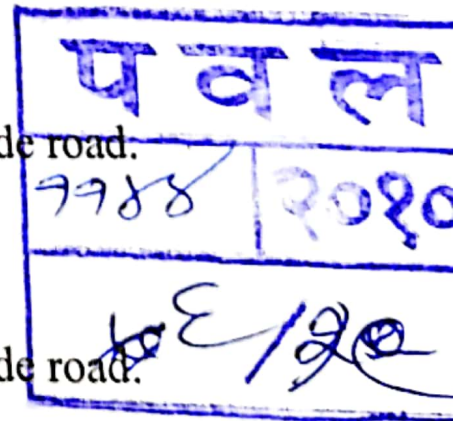 प व ल
de road.
११४४ २०१०
de road.